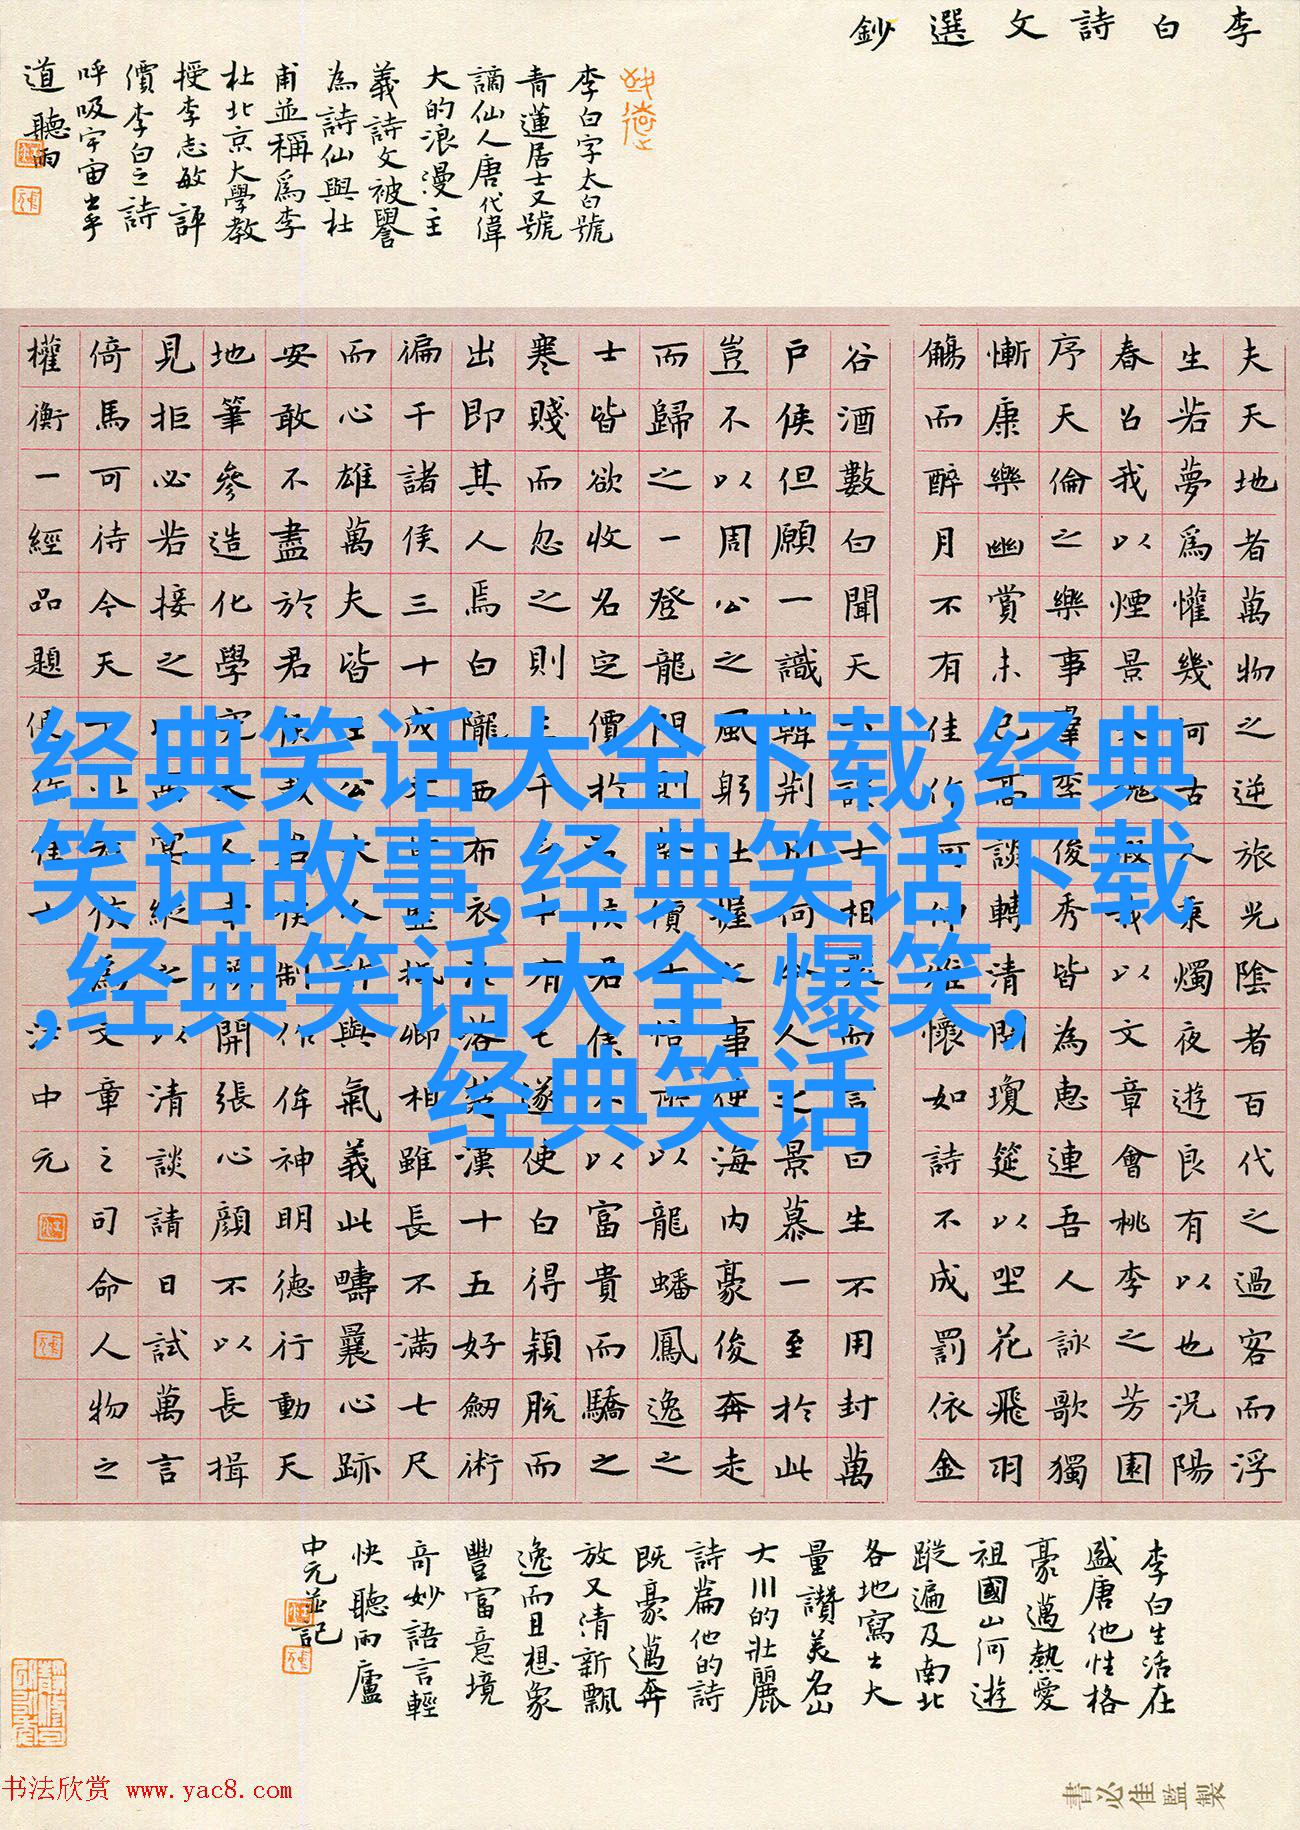 李白詩文選鈔
李白字太白號
青蓮居士又號
謫仙人唐代偉
大的浪漫主
義詩文被譽
為詩仙與杜
甫並稱為李
杜北京大學教
授李志敏評
價李白之詩
呼吸宇宙出乎
道
聽雨
夫天地者萬物之逆旅光陰者百代之過客而浮
生若夢為懽幾何古人秉燭夜遊良有以也況陽
春召我以煙景大塊假我以文章會桃李之芳園
序天倫之樂事羣季俊秀皆為惠連吾人詠歌獨
慚康樂幽賞未已高談轉清開瓊筵以坐花飛羽
觴而醉月不有佳作何伸雅懷如詩不成罰依金
谷酒數白聞天下談士相聚而言曰生不用封萬
戶侯但願一識韓荊州何令人之景慕一至於此
豈不以周公之風躬吐握之事使海內豪俊奔走
而歸之一登龍門則聲價十倍所以龍蟠鳳逸之
士皆欲收名定價於君侯君侯不以富貴而驕之
寒賤而忽之則三千之中有毛遂使白得穎脫而
出即其人焉白隴西布衣流落楚漢十五好劒術
徧干諸侯三十成文章歷抵卿相雖長不滿七尺
而心雄萬夫皆王公大人許與氣義此疇曩心跡
安敢不盡於君侯哉君侯制作侔神明德行動天
地筆參造化學究天人幸願開張心顏不以長揖
見拒必若接之以高宴縱之以清談請日試萬言
倚馬可待今天下以君侯為文章之司命人物之
權衡一經品題便作佳士
中元
李白生活在
盛唐他性格
豪邁熱愛
祖國山河遊
蹤遍及南北
各地寫出大
量讚美名山
大川的壯麗
詩篇他的詩
既豪邁奔
放又清新飄
逸而且想象
豐富意境
奇妙語言輕
快聽雨廬
中元並記
经典笑话大全下载,经典
笑话故事,经典笑话下载
,经典笑话大全 爆笑,
经典笑话
书法欣赏 www.yac8.com
書必佳監製